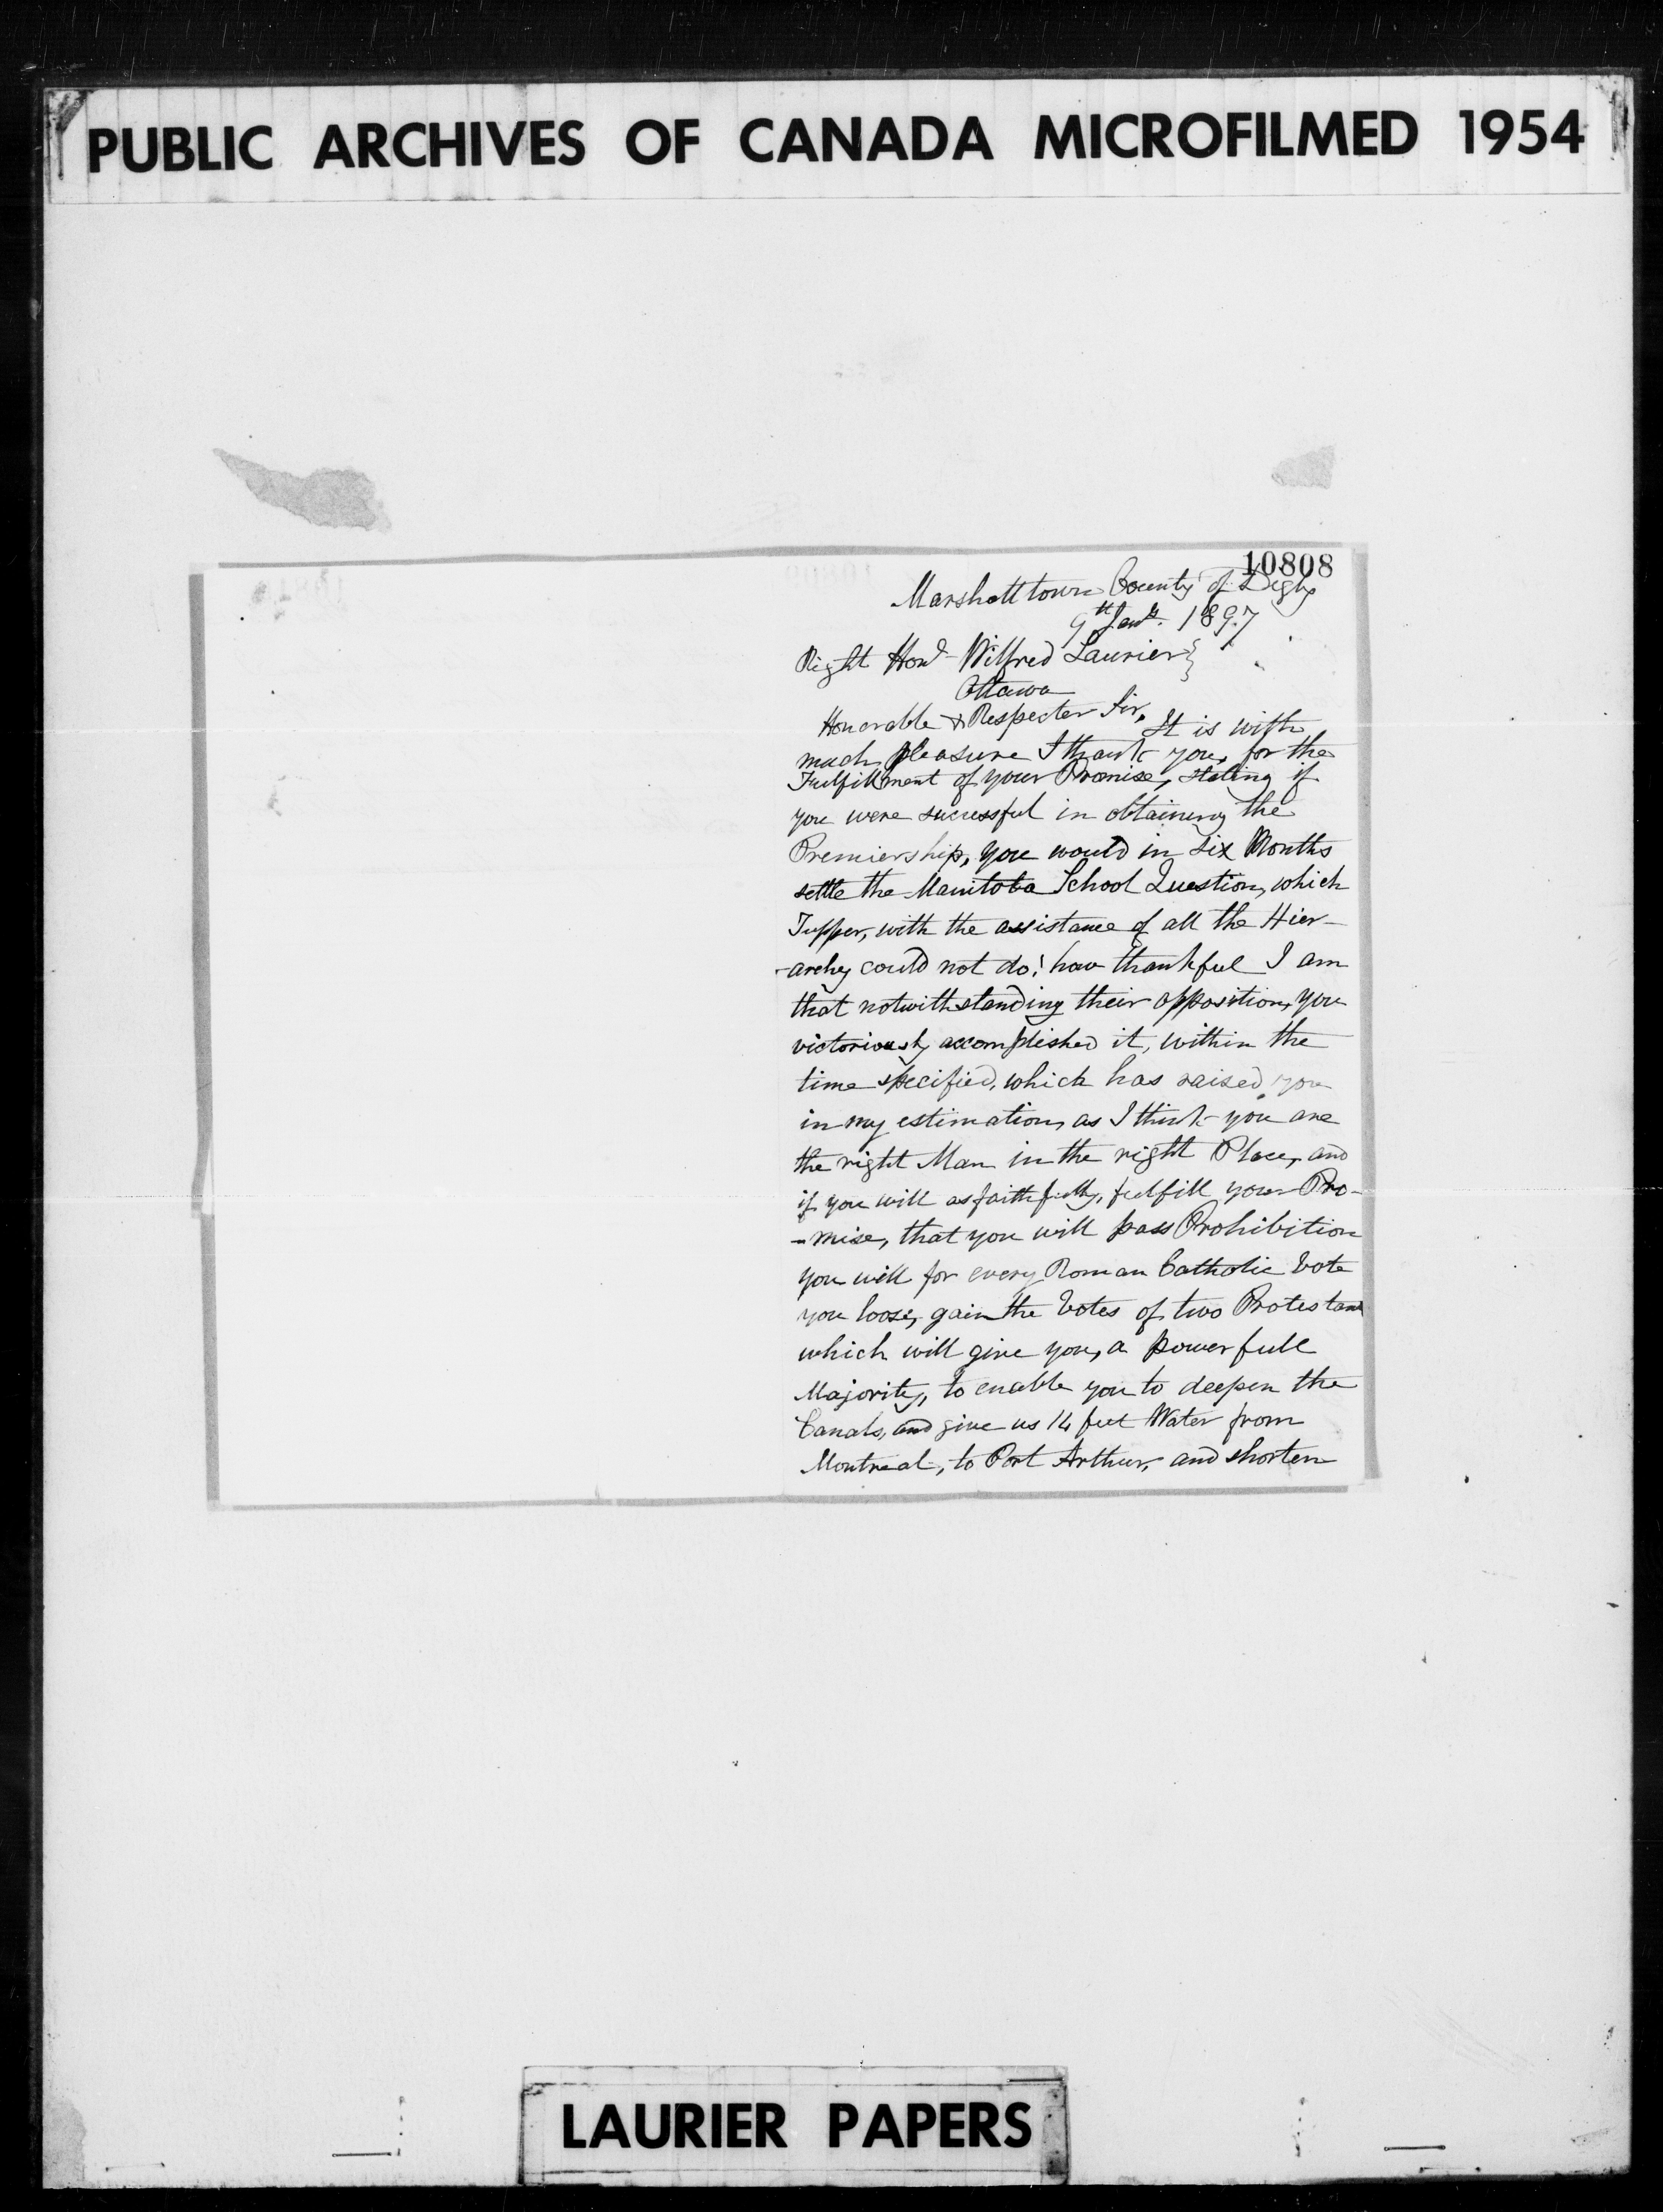 PUBLIC ARCHIVES OF CANADA MICROFILMED 1954
10808
Marshalltown County of Digby
9th Jany. 1897
Right Honl Wilfred Laurier
Ottawa
Honorable & Respected Sir,
It is with
much pleasure I thank you, for the
Fulfillment of your Promise, stating if
you were sucessful in obtaining the
Premiership, you would in Six Months
settle the Manitoba School Question, which
Tupper, with the assistance of all the Hier-
-archy could not do! how thankful I am
that notwithstanding their opposition, you
victoriously accomplished it, within the
time specified, which has raised you
in my estimation, as I think you are
the right Man in the right Place, and
if you will as faithfully, fulfill your Pro-
-mise, that you will pass Prohibition
you will for every Roman Catholic Vote
you loose, gain the Votes of two Protestant
which will give you, a powerfull
Majority, to enable you to deepen the
Canals, and give us 14 feet Water from
Montreal, to Port Arthur, and shorten
LAURIER PAPERS